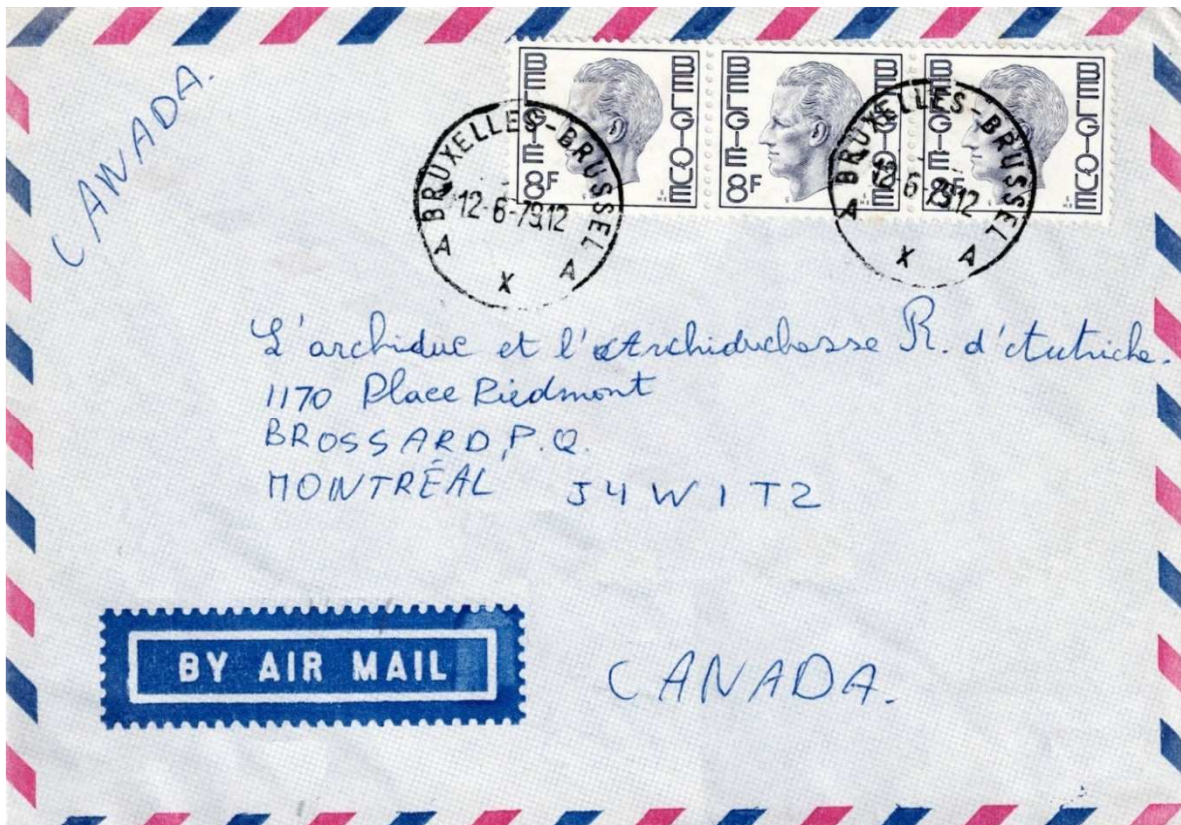 CANADA.
BELGIE BELGIQUE 8F
BELGIE BELGIQUE 8F
BELGIE BELGIQUE 8F
BRUXELLES-BRUSSEL
12-6-79.12
A X A
BRUXELLES-BRUSSEL
12-6-79.12
A X A
L'archiduc et l'Archiduchesse R. d'Autriche.
1170 Place Piedmont
BROSSARD, P.Q.
MONTRÉAL J4W 1T2
BY AIR MAIL
CANADA.